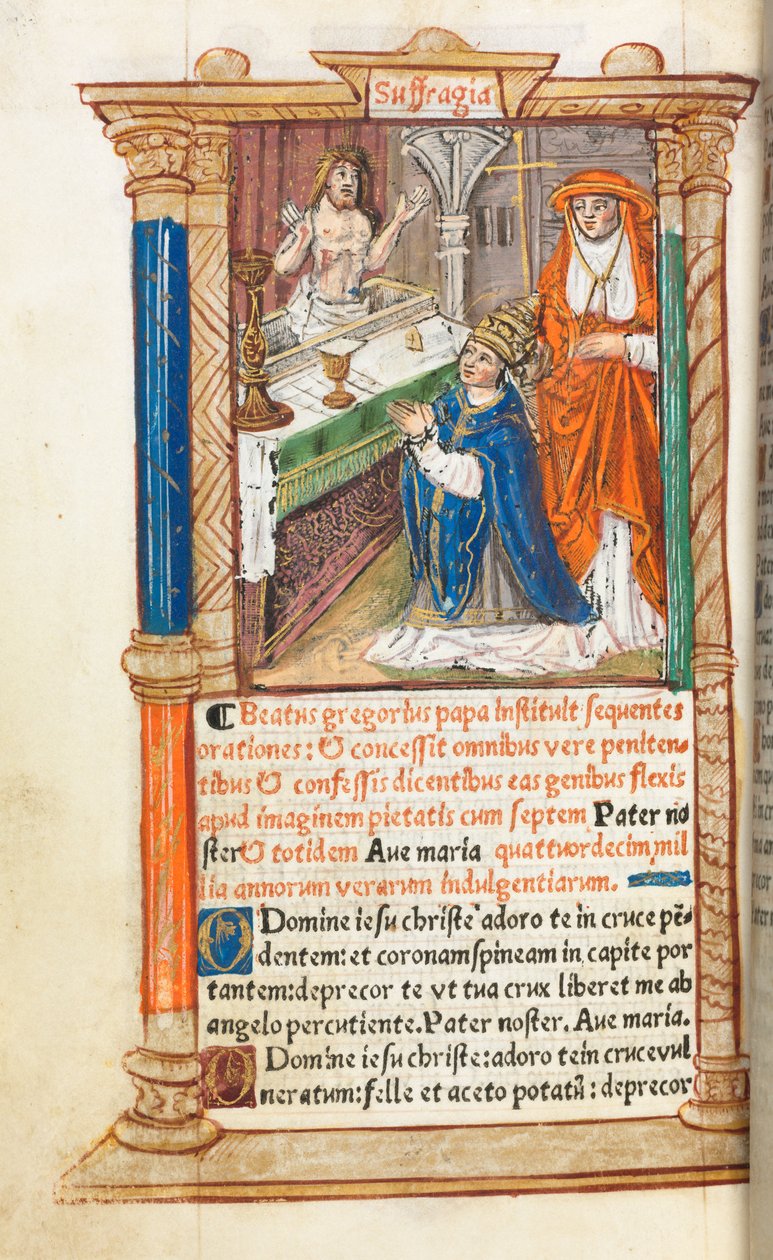 Suffragia
Beatus gregorius papa instituit sequentes
orationes: & concessit omnibus vere peniten-
tibus & confessis dicentibus eas genibus flexis
apud imaginem pietatis cum septem Pater no
ster & totidem Aue maria quattuordecim mil
lia annorum verarum indulgentiarum.
O Domine iesu christe adoro te in cruce pē-
dentem: et coronam spineam in capite por
tantem: deprecor te vt tua crux liberet me ab
angelo percutiente. Pater noster. Aue maria.
O Domine iesu christe: adoro te in cruce vul
neratum: felle et aceto potatū: deprecor